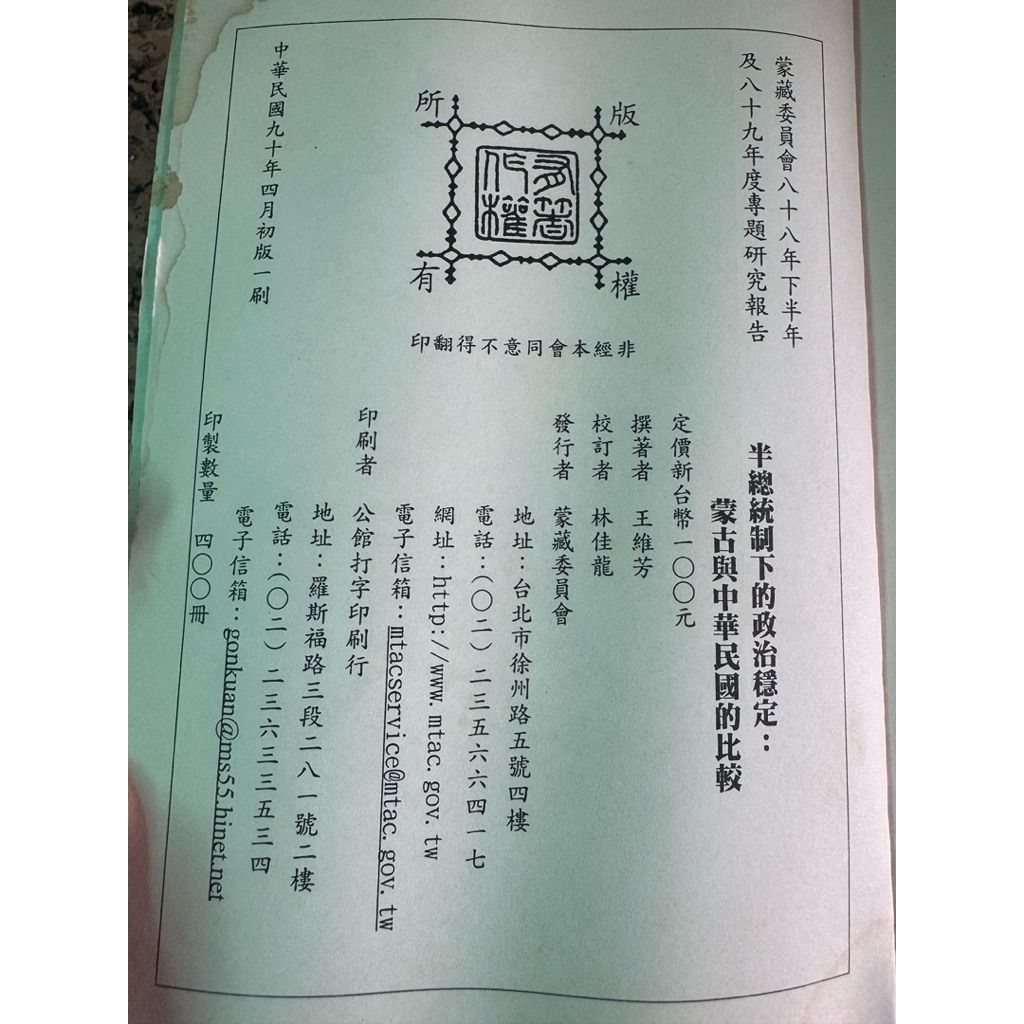 蒙藏委員會八十八年下半年
及八十九年度專題研究報告
版權所有
非經本會同意不得翻印
中華民國九十年四月初版一刷
半總統制下的政治穩定：
蒙古與中華民國的比較
定價新台幣一〇〇元
撰著者　王維芳
校訂者　林佳龍
發行者　蒙藏委員會
地址：台北市徐州路五號四樓
電話：(〇二)二三五六六四一七
網址：http://www.mtac.gov.tw
電子信箱：mtacservice@mtac.gov.tw
印刷者　公館打字印刷行
地址：羅斯福路三段二八一號二樓
電話：(〇二)二三六三三五三四
電子信箱：gonkuan@ms55.hinet.net
印製數量　四〇〇冊